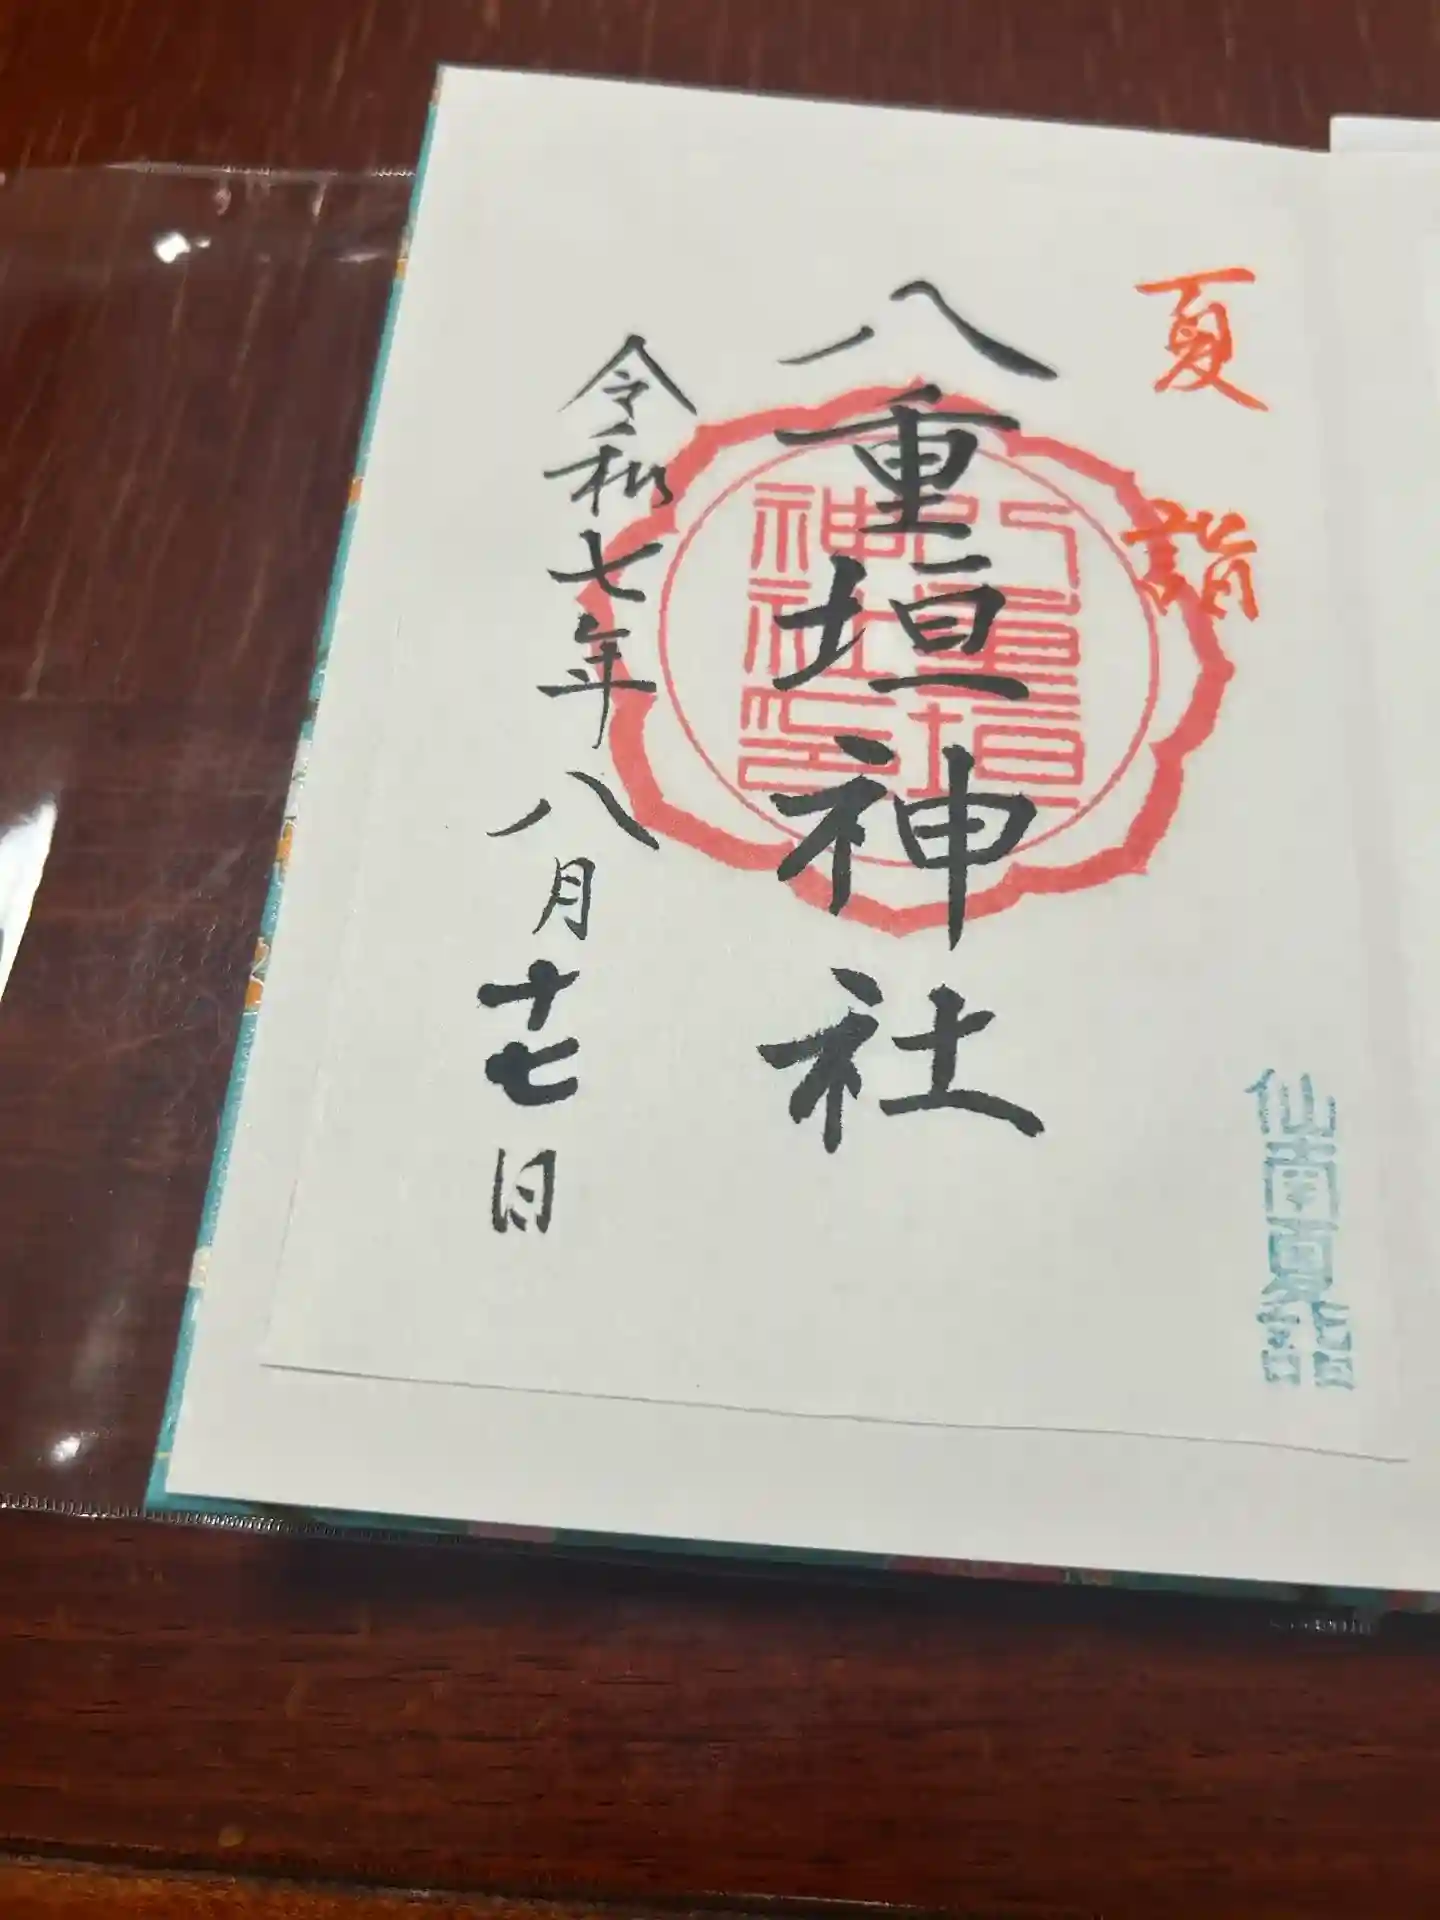 夏詣
八重垣神社
八重垣神社印
令和七年八月十七日
仙南夏詣